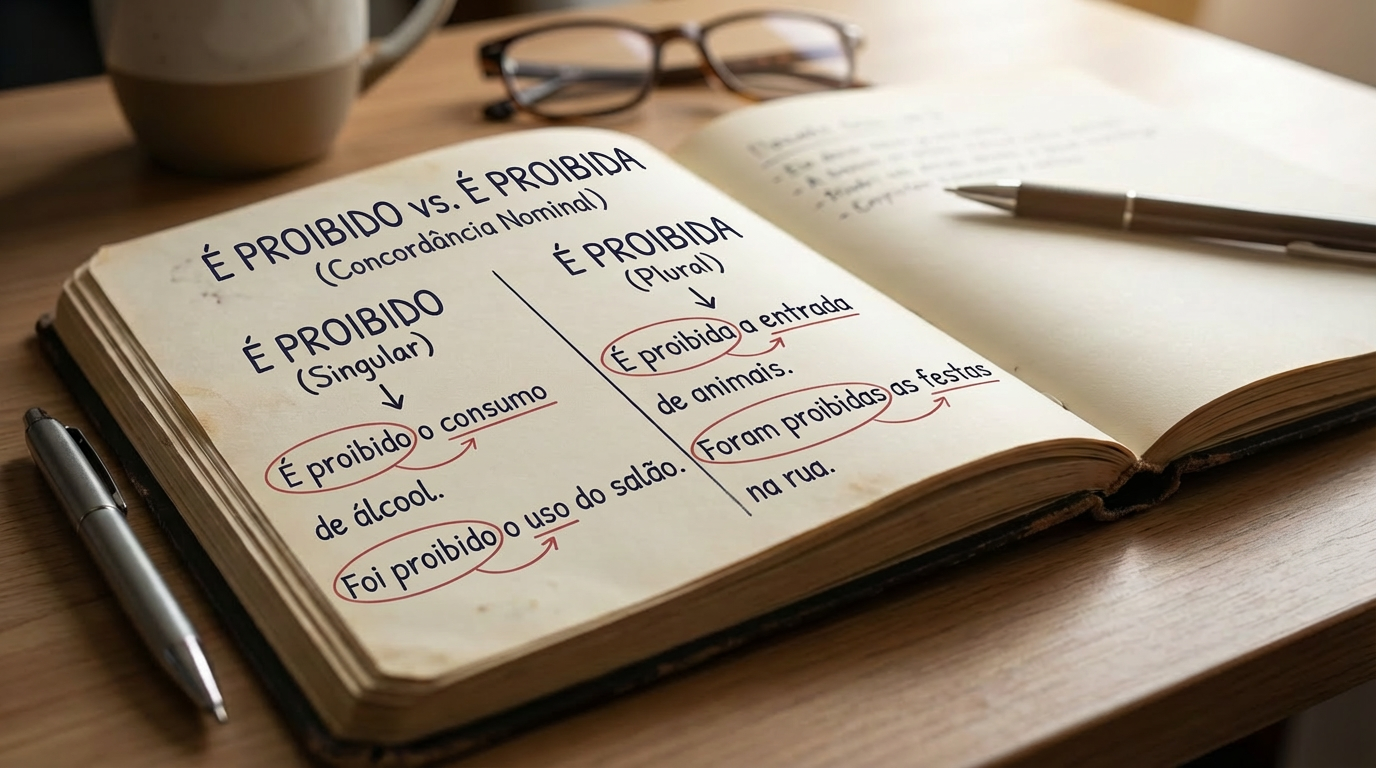 É PROIBIDO vs. É PROIBIDA
(Concordância Nominal)
É PROIBIDO
(Singular)
↓
É proibido o consumo
de álcool.
Foi proibido o uso do salão.
É PROIBIDA
(Plural)
↓
É proibida a entrada
de animais.
Foram proibidas as festas
na rua.